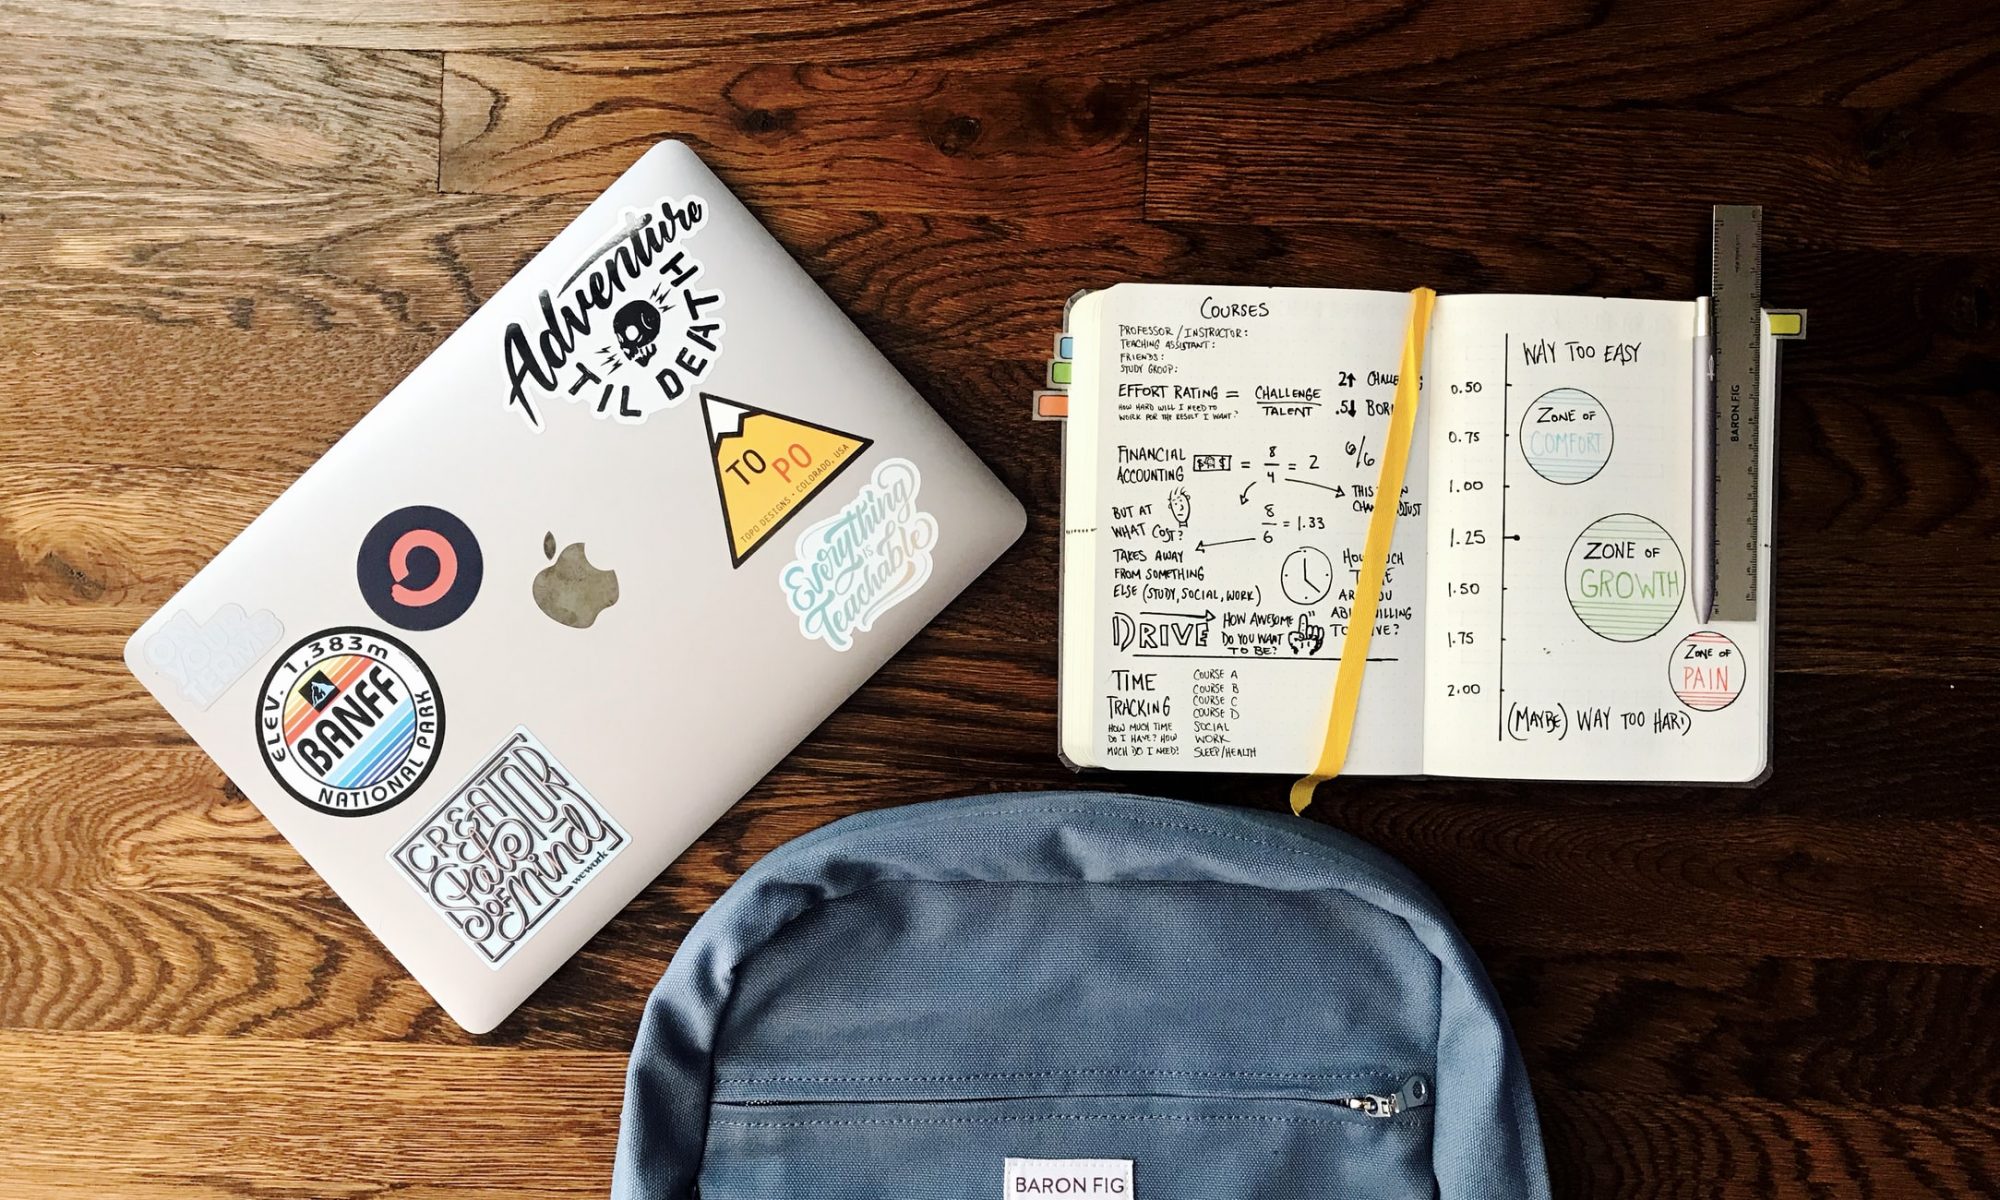 Adventure
TIL DEATH
TO PO
TOPO DESIGNS • COLORADO, USA
Everything
is
Teachable
ON
YOUR
TERMS
ELEV. 1,383m
BANFF
NATIONAL PARK
CREATOR
State
OF Mind
wework
COURSES
PROFESSOR / INSTRUCTOR:
TEACHING ASSISTANT:
FRIENDS:
STUDY GROUP:
EFFORT RATING = CHALLENGE
TALENT
HOW HARD WILL I NEED TO
WORK FOR THE RESULT I WANT?
2↑
.5↓
FINANCIAL
ACCOUNTING = 8/4 = 2
6/6
THIS
BUT AT
WHAT COST?
8/6 = 1.33
TAKES AWAY
FROM SOMETHING
ELSE (STUDY, SOCIAL, WORK)
DRIVE
HOW AWESOME
DO YOU WANT
TO BE?
TIME
TRACKING
HOW MUCH TIME
DO I HAVE? HOW
MUCH DO I NEED?
COURSE A
COURSE B
COURSE C
COURSE D
SOCIAL
WORK
SLEEP/HEALTH
WAY TOO EASY
0.50
0.75
1.00
1.25
1.50
1.75
2.00
ZONE OF
COMFORT
ZONE OF
GROWTH
ZONE OF
PAIN
(MAYBE) WAY TOO HARD
BARON FIG
BARON FIG